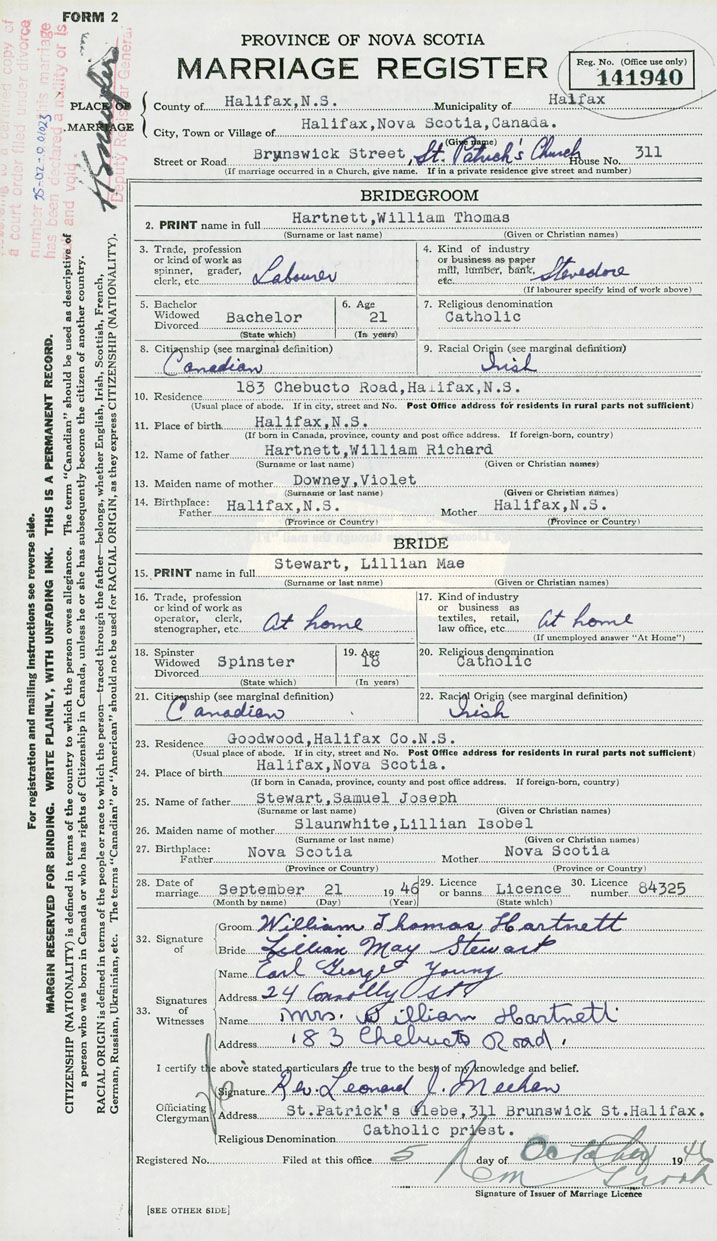 FORM 2
PROVINCE OF NOVA SCOTIA
MARRIAGE REGISTER
Reg. No. (Office use only)
141940
PLACE OF MARRIAGE
County of Halifax,N.S. Municipality of Halifax
City, Town or Village of Halifax,Nova Scotia,Canada.
(Give name)
Street or Road Brunswick Street, St. Patrick's Church House No. 311
(If marriage occurred in a Church, give name. If in a private residence give street and number)
BRIDEGROOM
2. PRINT name in full Hartnett,William Thomas
(Surname or last name) (Given or Christian names)
3. Trade, profession or kind of work as spinner, grader, clerk, etc. Labourer
4. Kind of industry or business as paper mill, lumber, bank, etc. Stevedore
(If labourer specify kind of work above)
5. Bachelor Widowed Divorced Bachelor
(State which)
6. Age 21
(In years)
7. Religious denomination Catholic
8. Citizenship (see marginal definition) Canadian
9. Racial Origin (see marginal definition) Irish
10. Residence 183 Chebucto Road,Halifax,N.S.
(Usual place of abode. If in city, street and No. Post Office address for residents in rural parts not sufficient)
11. Place of birth Halifax,N.S.
(If born in Canada, province, county and post office address. If foreign-born, country)
12. Name of father Hartnett,William Richard
(Surname or last name) (Given or Christian names)
13. Maiden name of mother Downey,Violet
(Surname or last name) (Given or Christian names)
14. Birthplace: Father Halifax,N.S. Mother Halifax,N.S.
(Province or Country) (Province or Country)
BRIDE
15. PRINT name in full Stewart, Lillian Mae
(Surname or last name) (Given or Christian names)
16. Trade, profession or kind of work as operator, clerk, stenographer, etc. At home
17. Kind of industry or business as textiles, retail, law office, etc. At home
(If unemployed answer "At Home")
18. Spinster Widowed Divorced Spinster
(State which)
19. Age 18
(In years)
20. Religious denomination Catholic
21. Citizenship (see marginal definition) Canadian
22. Racial Origin (see marginal definition) Irish
23. Residence Goodwood,Halifax Co.N.S.
(Usual place of abode. If in city, street and No. Post Office address for residents in rural parts not sufficient)
24. Place of birth Halifax,Nova Scotia.
(If born in Canada, province, county and post office address. If foreign-born, country)
25. Name of father Stewart,Samuel Joseph
(Surname or last name) (Given or Christian names)
26. Maiden name of mother Slaunwhite,Lillian Isobel
(Surname or last name) (Given or Christian names)
27. Birthplace: Father Nova Scotia Mother Nova Scotia
(Province or Country) (Province or Country)
28. Date of marriage September 21 1946 29. Licence or banns Licence 30. Licence number 84325
(Month by name) (Day) (Year) (State which)
32. Signature of
Groom William Thomas Hartnett
Bride Lillian May Stewart
33. Signatures of Witnesses
Name Earl George Young
Address 24 Connolly St
Name Mrs. William Hartnett
Address 183 Chebucto Road.
I certify the above stated particulars are true to the best of my knowledge and belief.
Officiating Clergyman
Signature Rev. Leonard J. Meehan
Address St.Patrick's Glebe,311 Brunswick St.Halifax.
Religious Denomination Catholic priest.
Registered No. Filed at this office 5 day of October 1946
Signature of Issuer of Marriage Licence
[SEE OTHER SIDE]
For registration and mailing instructions see reverse side.
MARGIN RESERVED FOR BINDING. WRITE PLAINLY, WITH UNFADING INK. THIS IS A PERMANENT RECORD.
CITIZENSHIP (NATIONALITY) is defined in terms of the country to which the person owes allegiance. The term "Canadian" should be used as descriptive of
a person who was born in Canada or who has rights of Citizenship in Canada, unless he or she has subsequently become the citizen of another country.
RACIAL ORIGIN is defined in terms of the people or race to which the person—traced through the father—belongs, whether English, Irish, Scottish, French,
German, Russian, Ukrainian, etc. The terms "Canadian" or "American" should not be used for RACIAL ORIGIN, as they express CITIZENSHIP (NATIONALITY).
copy of
a court order
divorce
number 75-02-001023
has been
marriage
or is
and void
Deputy Registrar General